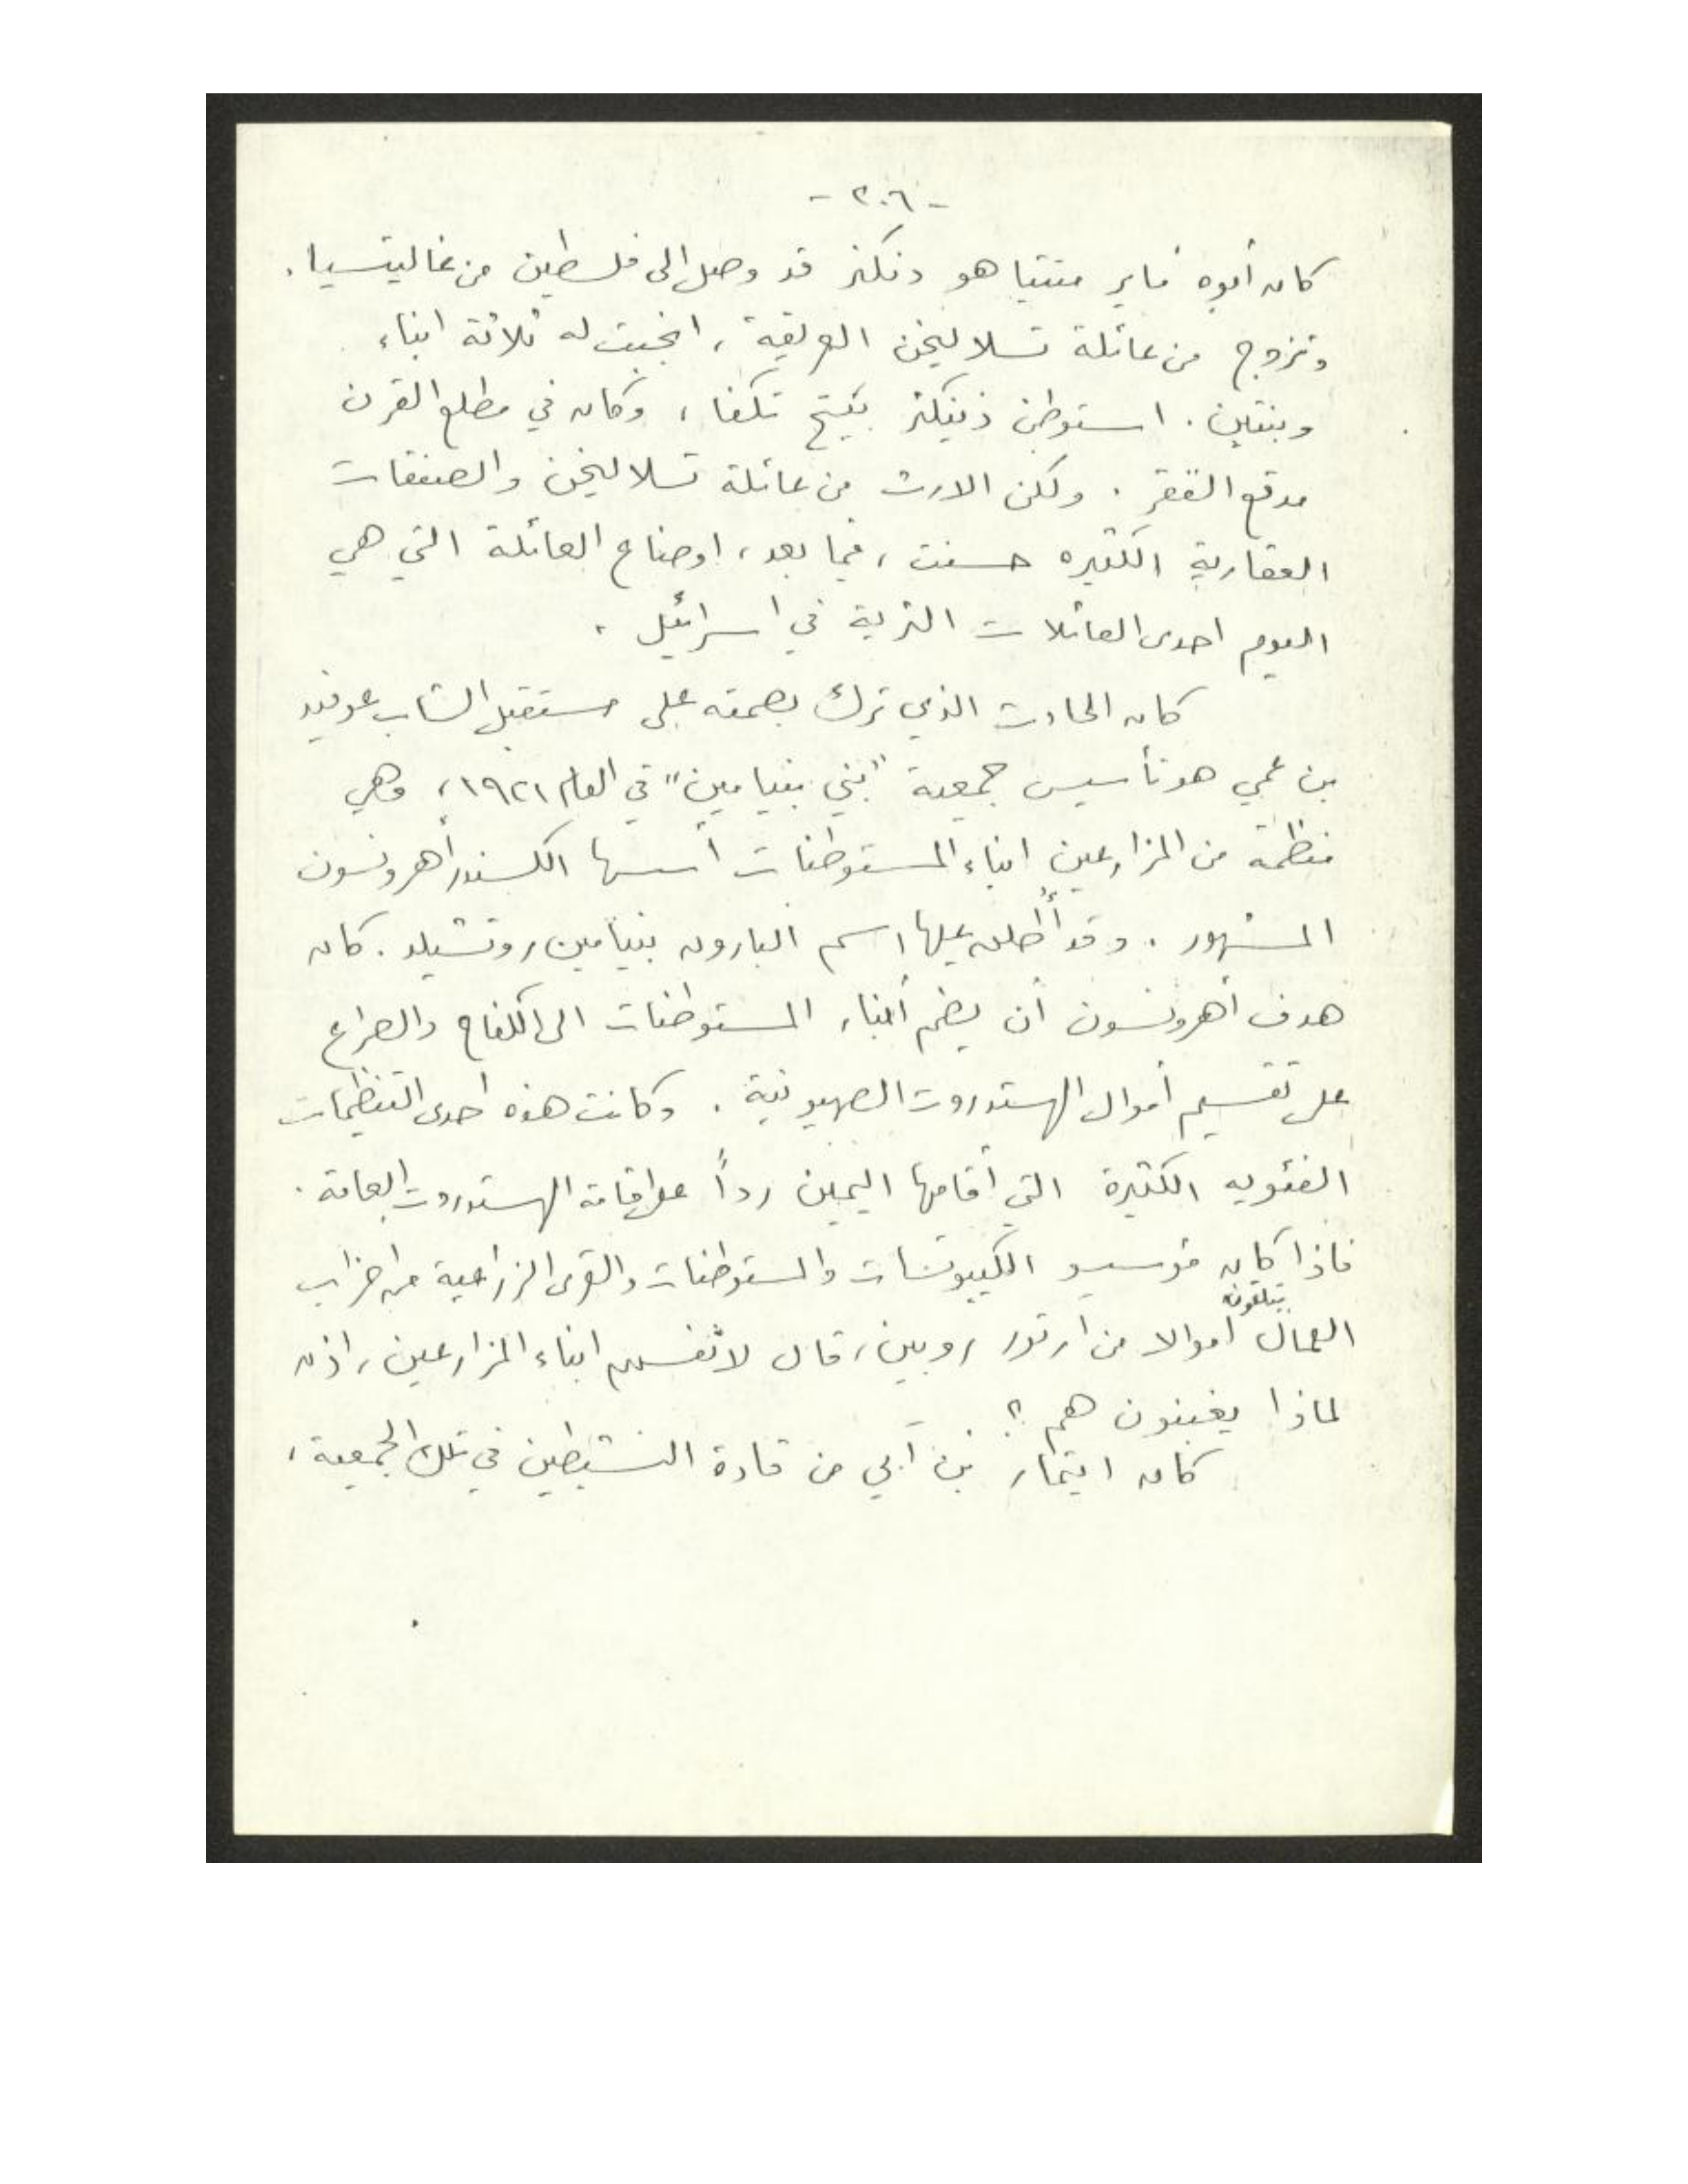 - ٢٠٦ -
كان أبوه ماير متتياهو دنكنر قد وصل الى فلسطين من غاليتسيا.
وتزوج من عائلة تسلاليخن العريقة، انجبت له ثلاثة ابناء
وبنتين. استوطن دينكنر بيتح تكفا، وكان في مطلع القرن
مدقع الفقر. ولكن الارث من عائلة تسلاليخن والصفقات
العقارية الكثيره حسنت، فيما بعد، اوضاع العائلة التي هي
اليوم احدى العائلات الثرية في اسرائيل.
كان الحادث الذي ترك بصمته على مستقبل الشاب عوفيد
بن عمي هو تأسيس جمعية "بني بنيامين" في العام ١٩٢١، وهي
منظمة من المزارعين ابناء المستوطنات أسسها الكسندر أهرونسون
المشهور. وقد أُطلق عليها اسم البارون بنيامين روتشيلد. كان
هدف أهرونسون أن يضم أبناء المستوطنات الى الكفاح والصراع
على تقسيم أموال الهستدروت الصهيونية. وكانت هذه احدى التنظيمات
الفئويه الكثيرة التي أقامها اليمين رداً على اقامة الهستدروت العامة.
فاذا كان مؤسسو الكيبوتسات والمستوطنات والقرى الزراعية من احزاب
العمال يتلقون اموالا من ارتور روبين، قال لانفسهم ابناء المزارعين، اذن
لماذا يغبنون هم؟
كان ايتمار بن آبي من قادة النشيطين في تلك الجمعية،